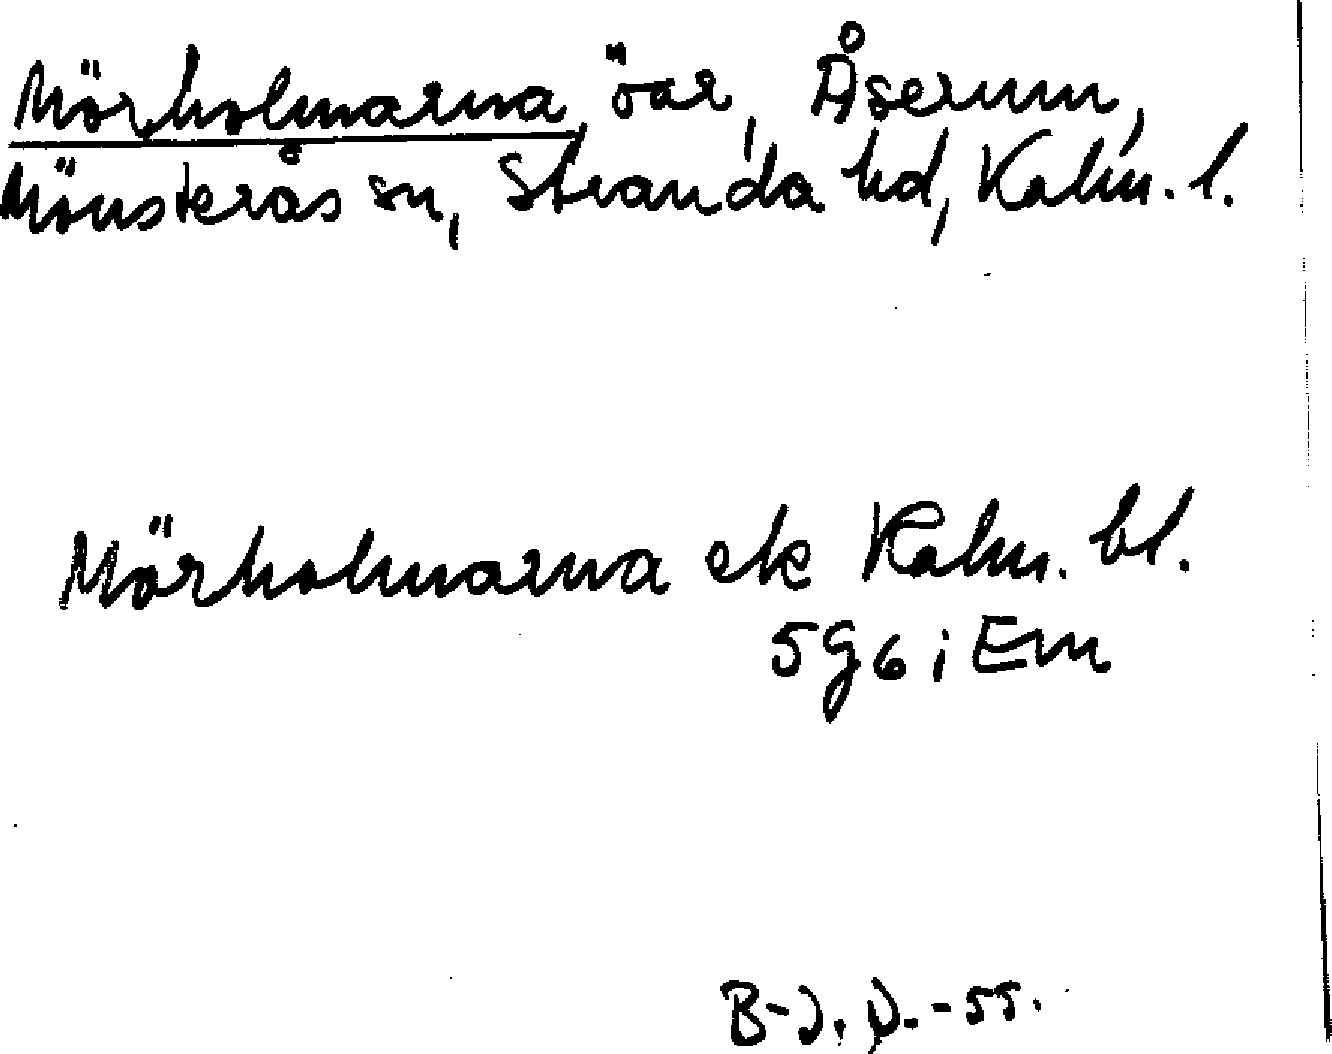 Mörholmarna, öar, Åserum,
Mönsterås sn, Stranda hd, Kalm. l.
Mörholmarna ek Kalm. bl.
5g6i Em
B-J. N. -55.